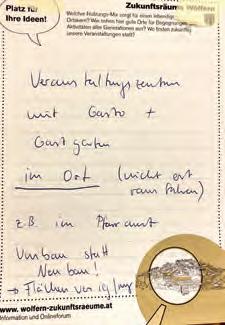 Platz für
Ihre Ideen!
Zukunftsräume Wolfern
Welcher Nutzungs-Mix sorgt für einen lebendigen
Ortskern? Wie sehen hier gute Orte für Begegnungen
Aktivitäten aller Generationen aus? Wo finden zukünftig
unsere Veranstaltungen statt?
Veranstaltungszentrum
mit Gastro +
Gastgarten
im Ort (nicht erst
raus fahren)
z.B. im Pfarramt
Umbau statt
Neubau!
→ Flächen
www.wolfern-zukunftsraeume.at
Information und Onlineforum